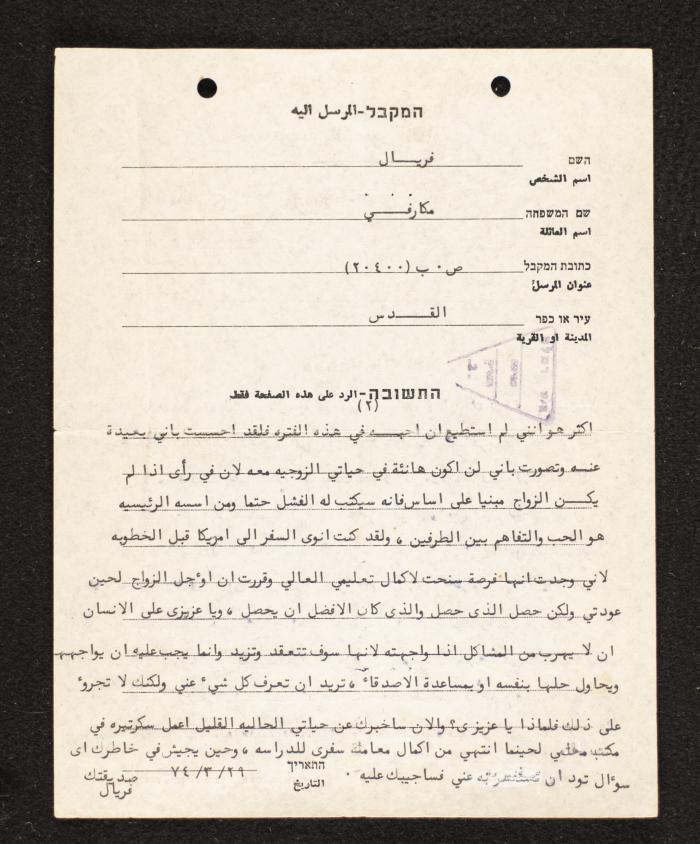 המקבל-المرسل اليه
השם فريــــال
اسم الشخص
שם המשפחה مكارفــــي
اسم العائلة
כתובת המקבל ص٠ب (٢٠٤٠٠)
عنوان المرسل
עיר או כפר القــــدس
المدينة او القرية
התשובה-الرد على هذه الصفحة فقط
(٢)
اكثر هو انني لم استطيع ان احبــــه في هذه الفتره فلقد احسست باني بعيدة
عنــه وتصورت باني لن اكون هانئة في حياتي الزوجيه معه لان في رأى اذا لم
يكـــن الزواج مبنيا على اساس فانه سيكتب له الفشل حتما ومن اسسه الرئيسيه
هو الحب والتفاهم بين الطرفين ، ولقد كنت انوى السفر الى امريكا قبل الخطوبه
لاني وجدت انها فرصة سنحت لاكمال تعليمي العالي وقررت ان اوءجل الزواج لحين
عودتي ولكن حصل الذى حصل والذى كان الافضل ان يحصل ، ويا عزيزى على الانسان
ان لا يهرب من المشاكل اذا واجهته لانها سوف تتعقد وتزيد وانما يجب عليه ان يواجهها
ويحاول حلها بنفسه او بمساعدة الاصدقاء ، تريد ان تعرف كل شيء عني ولكنك لا تجروء
على ذلك فلماذا يا عزيزى؟ والان ساخبرك عن حياتي الحاليه القليل اعمل سكرتيره في
مكتب محامي لحينما انتهي من اكمال معاملة سفرى للدراسه ، وحين يجيش في خاطرك اى
سوءال تود ان به عني فساجيبك عليه ٠
התאריך ٧٤/٣/٢٩
التاريخ
صديقتك
فريال